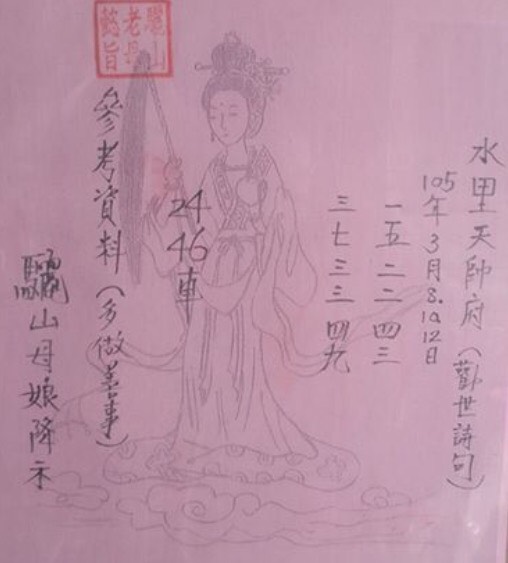 水里天帥府(勸世詩句)
105年3月8.10.12日
一五二二四三
三七三三四九
24
46
車
參考資料(多做善事)
驪山母娘降示
驪山老母懿旨